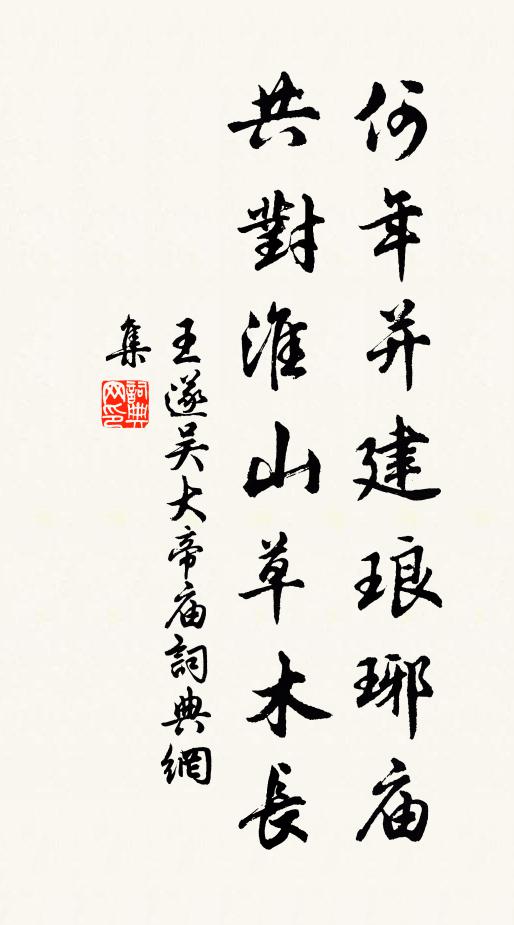 何年并建琅琊庙
共對淮山草木長
王遂吴大帝庙詞典網
集
詞典網印